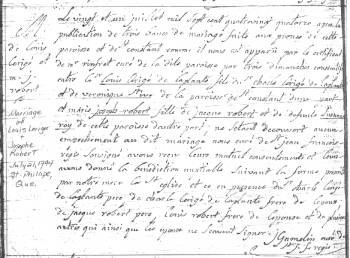 Le vingt et un juillet mil sept cent quatre vingt quatorze apres la
publication de trois bans de mariage faits aux prones de cette
paroisse et de st constant comme il nous est apparu par le certificat
de mr curé de la dite paroisse par trois dimanches consecutifs
entre Louis Longé de laplante fils de charle longé de laplante
et de veronique de la paroisse de st constant d'une part
et marie joseph robert fille de jacque robert et de defunte
roy de cette paroisse d'autre part, ne setant decouvert aucun
empechement au dit mariage nous curé de st jean francois
regis soussigné avons reçu leurs mutuel consentements et
avons donné la benediction nuptiale suivant la forme prescrite
par notre mere la Ste eglise et ce en presence de charle longé
de laplante pere de charle longé de laplante frere de lepoux,
de jacque robert pere, louis robert frere de lepouse et de plusieurs
autres qui ainsi que les epoux ne scavent signer
M
de Louis
Longé et
m. j.
robert
Mariage
Louis Longe
Josephe
Robert
July 21, 1794
St. Philippe,
Que.